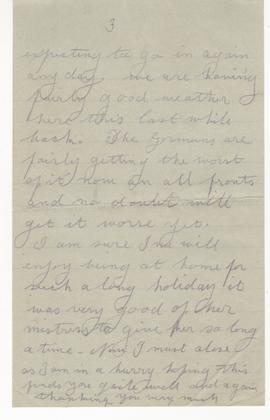 3
expecting to go in again
any day. we are having
fairly good weather
here this last while
back. The Germans are
fairly getting the worst
of it now on all fronts
and no doubt will
get it worse yet.
I am sure Ina will
enjoy being at home for
such a long holiday it
was very good of her
mistress to give her so long
a time. Now I must close
as I am in a hurry hoping this
finds you quite well and again
thanking you very much